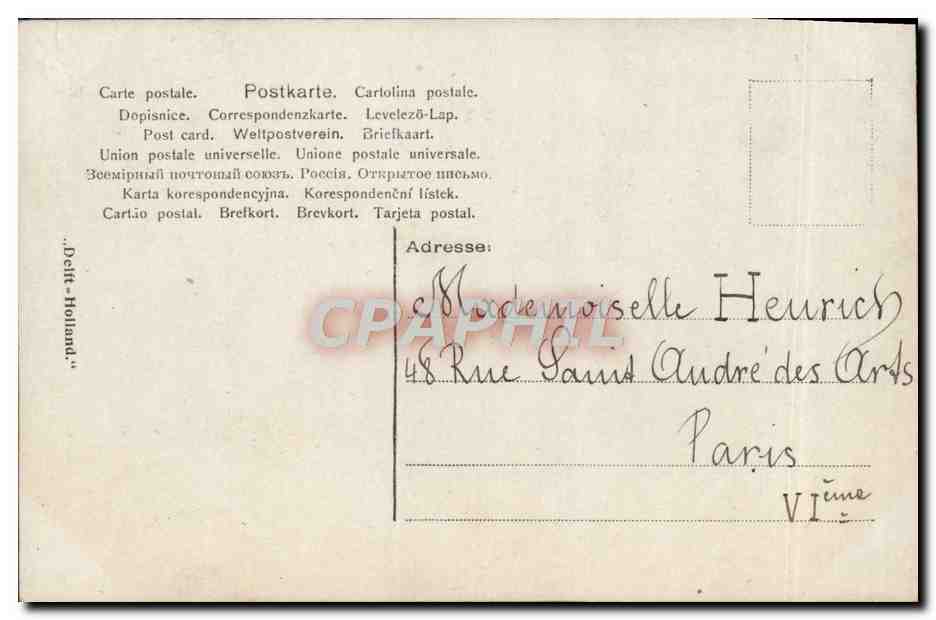 Carte postale. Postkarte. Cartolina postale.
Dopisnice. Correspondenzkarte. Levelező-Lap.
Post card. Weltpostverein. Briefkaart.
Union postale universelle. Unione postale universale.
Всемірный почтовый союзъ. Россія. Открытое письмо.
Karta korespondencyjna. Korespondenční lístek.
Cartão postal. Brefkort. Brevkort. Tarjeta postal.
„Delft-Holland.“
Adresse:
Mademoiselle Heurich
48 Rue Saint André des Arts
Paris
VIème
CPAPHIL